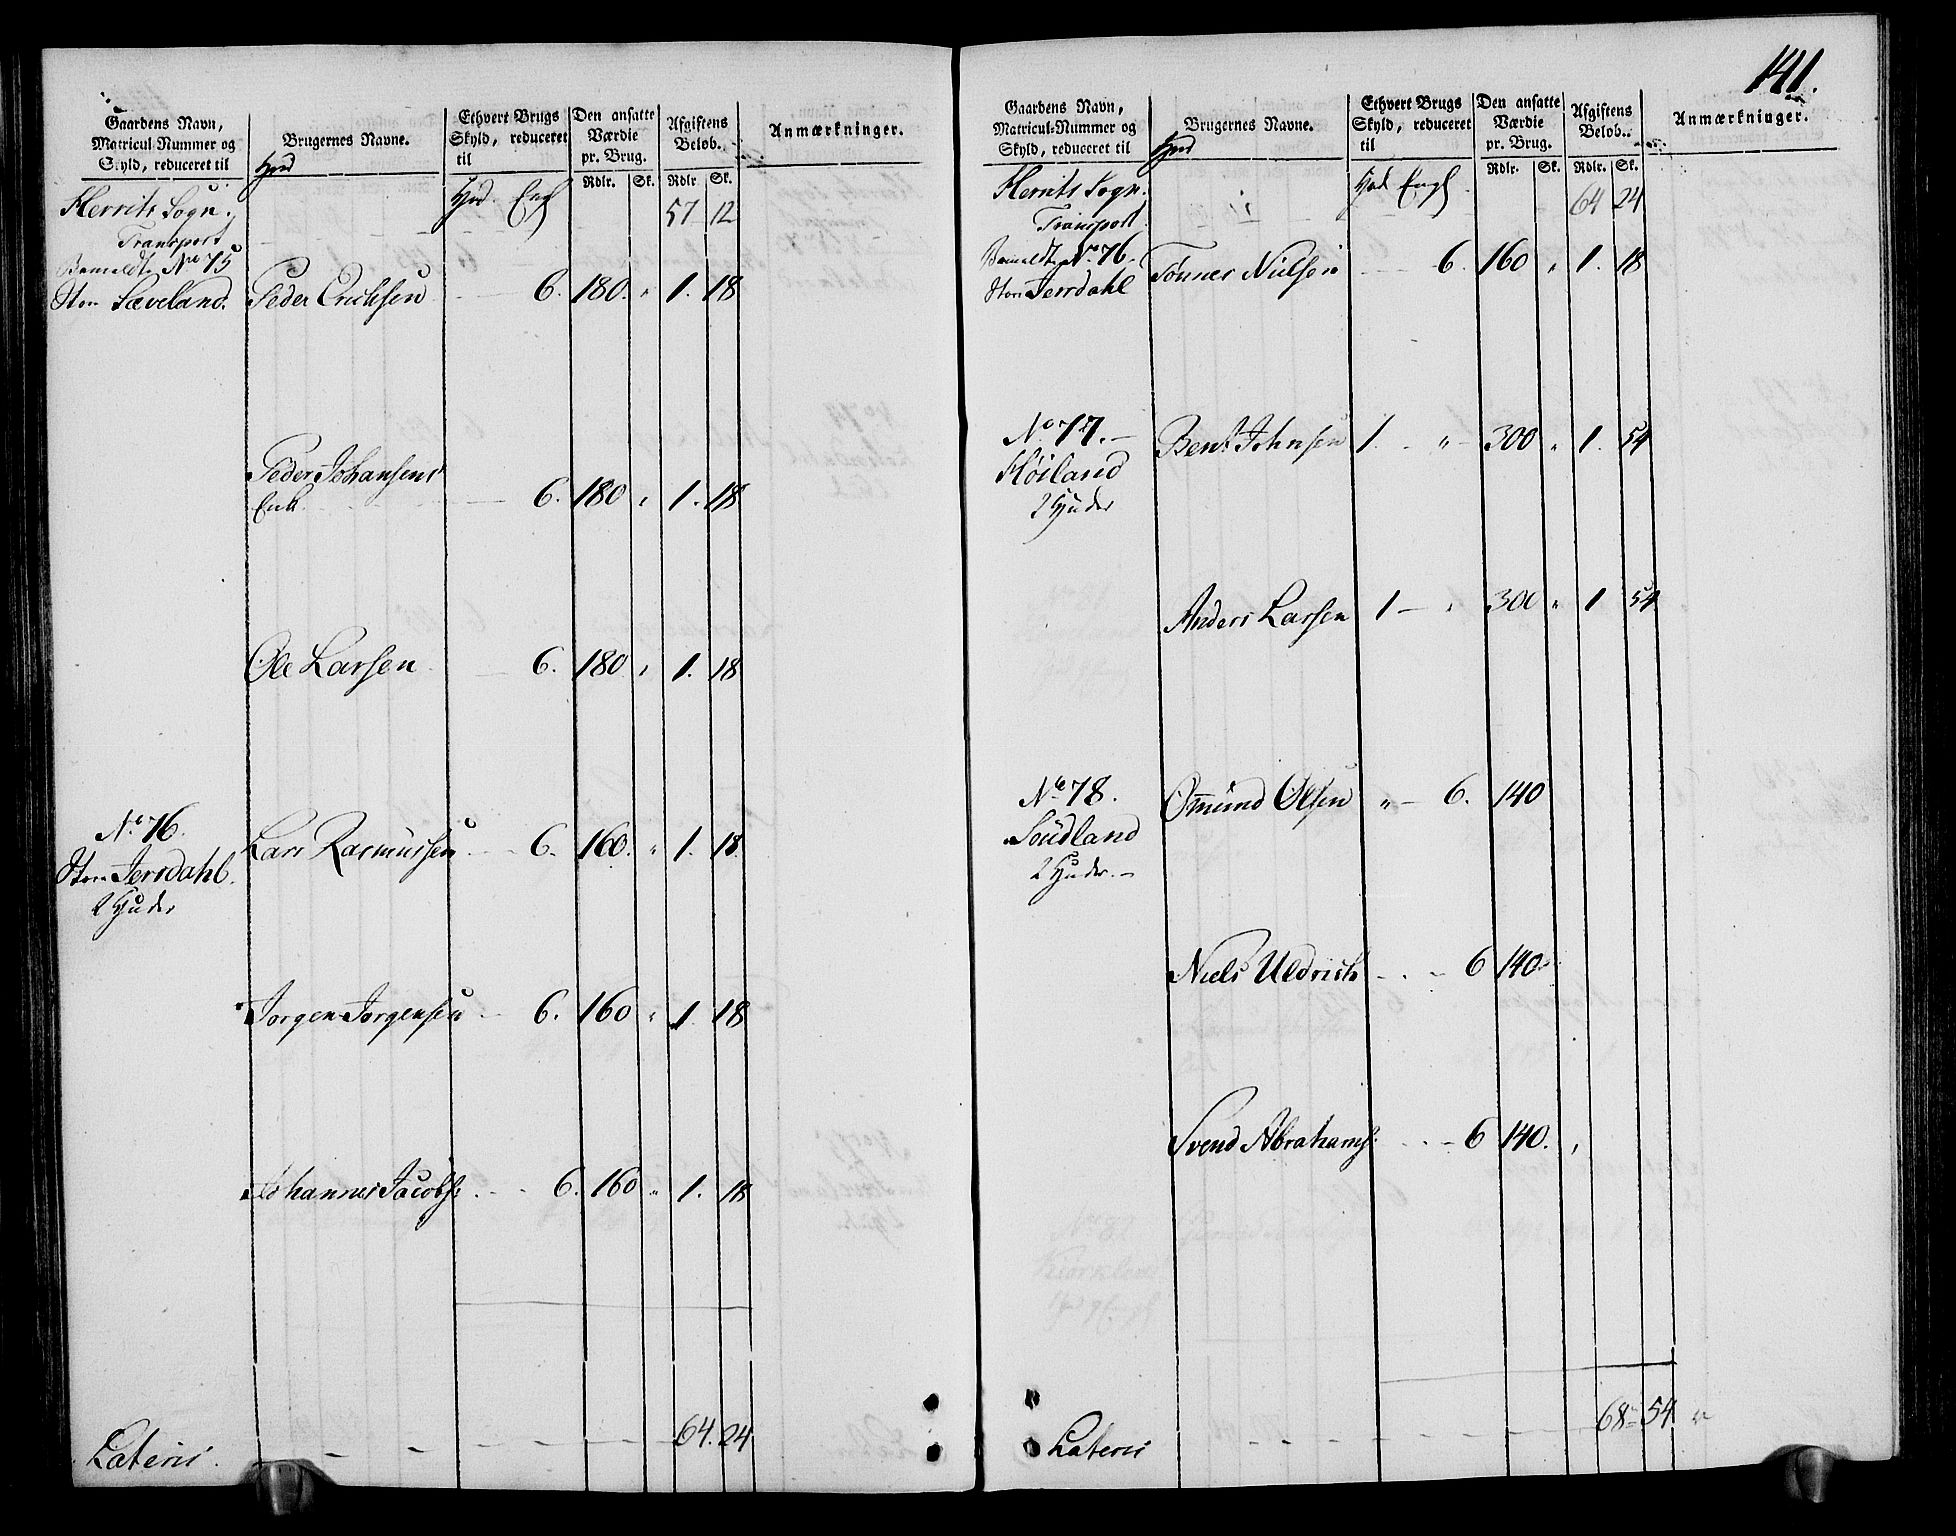 141.
Gaardens Navn, Matricul-Nummer og Skyld, reduceret til Hud
Brugernes Navne.
Ethvert Brugs Skyld, reduceret til
Den ansatte Værdie pr. Brug.
Afgiftens Beløb.
Anmærkninger.
Hud. Eng Rdlr. Sk. Rdlr. Sk.
Herrits Sogn. 57 12
Transport
No 75
Sæveland. Peder Erichsen 6. 180. " 1. 18
Peder Johansens
Enk. 6. 180 " 1. 18
Ole Larsen 6. 180 " 1. 18
No 76. Lars Rasmussen 6. 160. " 1. 18.
Jerrdahl.
2 Huder
Jørgen Jørgensen 6. 160 " 1. 18
Johannes Jacobs: 6. 160 " 1. 18
Lateris 64. 24
Gaardens Navn, Matricul-Nummer og Skyld, reduceret til Hud
Brugernes Navne.
Ethvert Brugs Skyld, reduceret til
Den ansatte Værdie pr. Brug.
Afgiftens Beløb.
Anmærkninger.
Hud Engl Rdlr. Sk. Rdlr. Sk.
Herrits Sogn. 64 24
Transport
No 76. Tønnes Nielsen 6. 160 " 1. 18
Jerrdahl
No 77. Bent Johnsen 1. " 300 " 1. 54
Høiland
2 Huder
Anders Larsen 1 " 300 " 1 54
No 78. Omund Olsen " 6. 140
Soudland
2 Huder.
Niels Uldrich 6 140
Svend Abrahams: 6 140.
Lateris 68 54